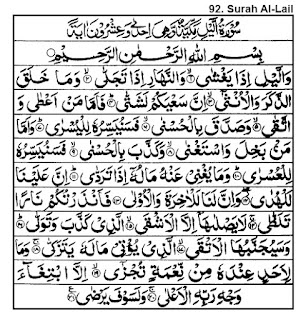 92. Surah Al-Lail
سُوْرَةُ الَّيْلِ مَكِّيَّةٌ وَّهِيَ اِحْدٰى وَعِشْرُوْنَ اٰيَةً
بِسْمِ اللّٰهِ الرَّحْمٰنِ الرَّحِيْمِ
وَالَّيْلِ اِذَا يَغْشٰى ۙ۱ وَالنَّهَارِ اِذَا تَجَلّٰى ۙ۲ وَمَا خَلَقَ
الذَّكَرَ وَالْاُنْثٰٓى ۙ۳ اِنَّ سَعْيَكُمْ لَشَتّٰى ؕ۴ فَاَمَّا مَنْ اَعْطٰى وَ
اتَّقٰى ۙ۵ وَصَدَّقَ بِالْحُسْنٰى ۙ۶ فَسَنُيَسِّرُهٗ لِلْيُسْرٰى ؕ۷ وَاَمَّا
مَنْۢ بَخِلَ وَاسْتَغْنٰى ۙ۸ وَكَذَّبَ بِالْحُسْنٰى ۙ۹ فَسَنُيَسِّرُهٗ
لِلْعُسْرٰى ؕ۱۰ وَمَا يُغْنِيْ عَنْهُ مَالُهٗٓ اِذَا تَرَدّٰى ؕ۱۱ اِنَّ عَلَيْنَا
لَلْهُدٰى ۖ۱۲ وَاِنَّ لَنَا لَلْاٰخِرَةَ وَالْاُوْلٰى ۱۳ فَاَنْذَرْتُكُمْ نَارًا
تَلَظّٰى ۚ۱۴ لَا يَصْلٰىهَآ اِلَّا الْاَشْقَى ۙ۱۵ الَّذِيْ كَذَّبَ وَتَوَلّٰى ؕ۱۶
وَسَيُجَنَّبُهَا الْاَتْقَى ۙ۱۷ الَّذِيْ يُؤْتِيْ مَالَهٗ يَتَزَكّٰى ۚ۱۸ وَمَا
لِاَحَدٍ عِنْدَهٗ مِنْ نِّعْمَةٍ تُجْزٰٓى ۙ۱۹ اِلَّا ابْتِغَآءَ
وَجْهِ رَبِّهِ الْاَعْلٰى ۚ۲۰ وَلَسَوْفَ يَرْضٰى ۲۱